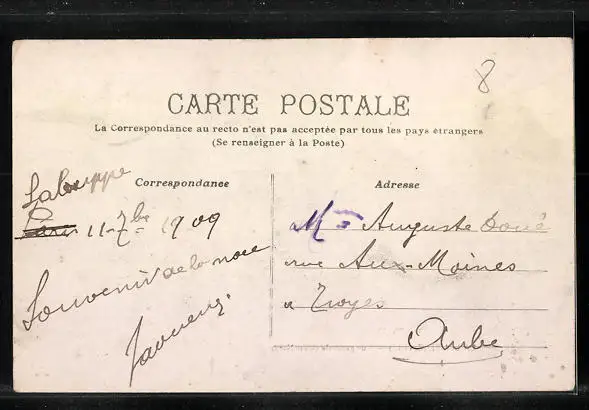 8
CARTE POSTALE
La Correspondance au recto n'est pas acceptée par tous les pays étrangers
(Se renseigner à la Poste)
Correspondance
Adresse
Lalouppe
Paris 11-7bre 1909
Souvenir de la noce
Mme Auguste Doué
rue Aux-Moines
a Troyes
Aube